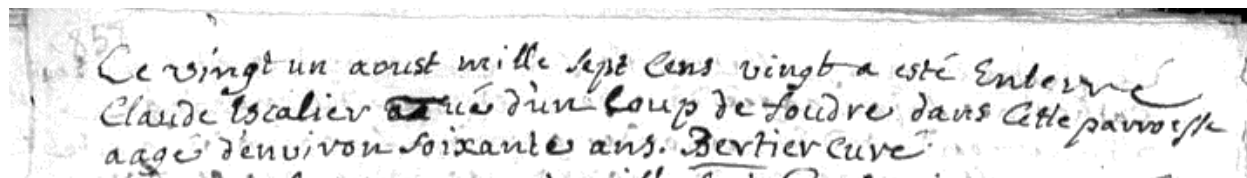 Le vingt un aoust mille sept cens vingt a esté Enterré
Claude Escalier tué d'un Coup de foudre dans Cette parroisse
aagé d'environ soixante ans. Bertier Curé